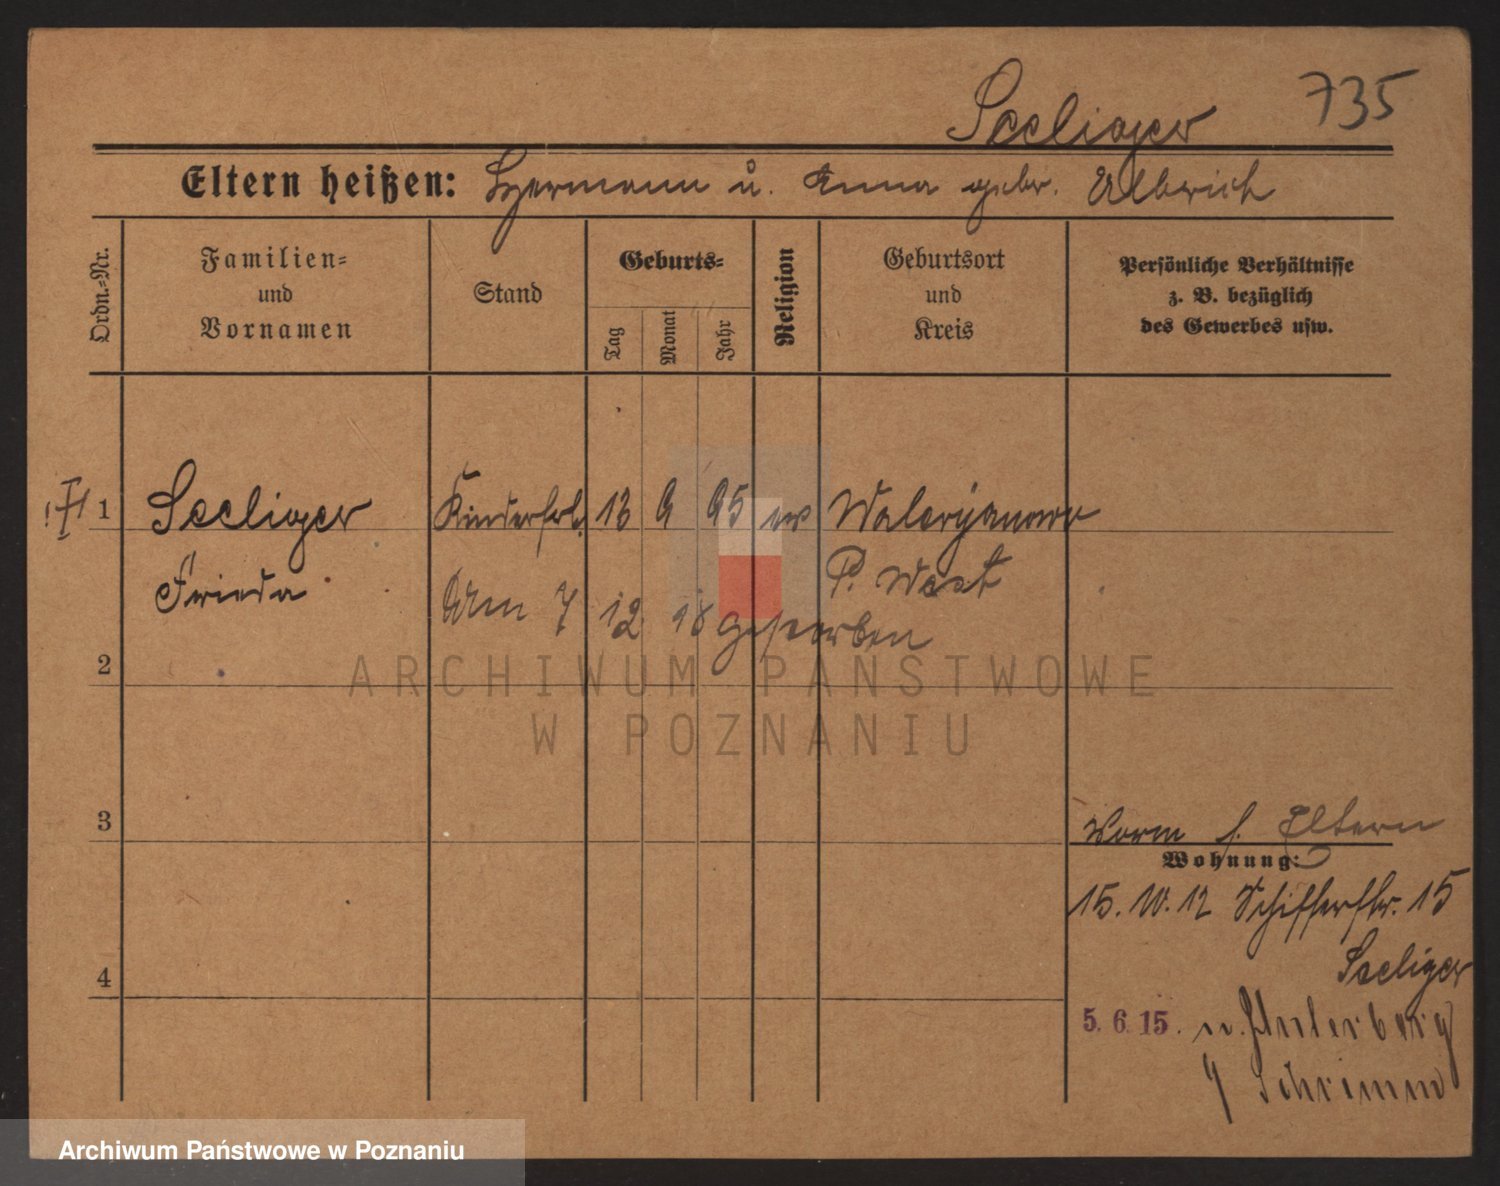 Seeliger 735
Eltern heißen: Hermann u. Anna gebr. Ulbrich
Ordn.-Nr.
Familien-
und
Vornamen
Stand
Geburts-
Tag
Monat
Jahr
Religion
Geburtsort
und
Kreis
Persönliche Verhältnisse
z. B. bezüglich
des Gewerbes usw.
1 Seeliger Kinderfrl. 13 9 95 ev Waleryanowo
Frieda P. West
Am 7 12 18 gestorben
2
ARCHIWUM PAŃSTWOWE
W POZNANIU
3
Eltern
Wohnung:
15. 10. 12 Schifferstr. 15
Seeliger
4
5. 6. 15. n.
Schrimm
Archiwum Państwowe w Poznaniu